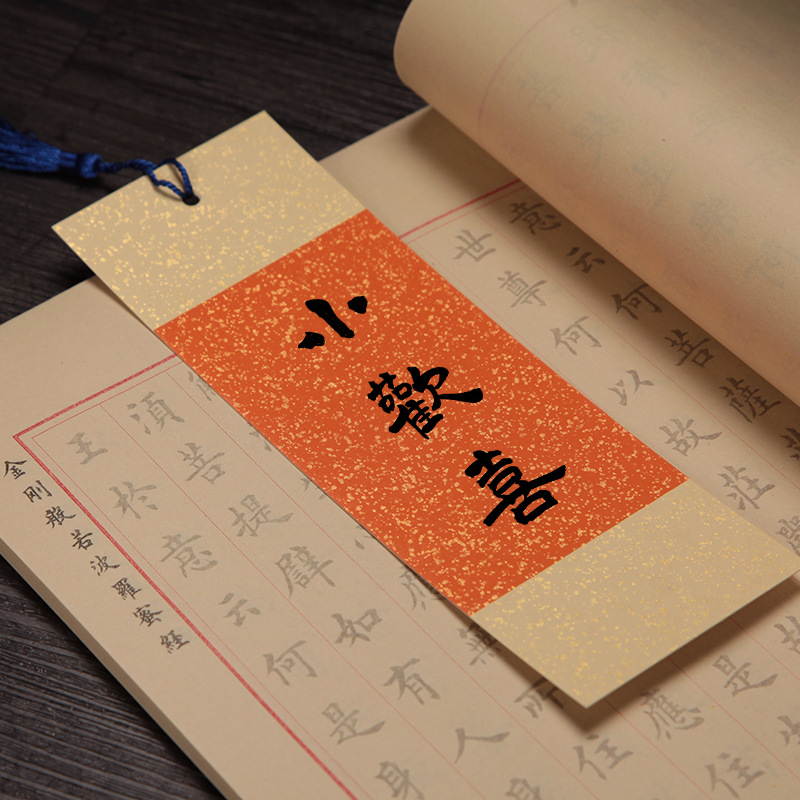 小歡喜
意云何菩薩
世尊何以故莊
故
是生
應住
無所住
須菩提譬如有人身
王於意云何是身
金剛般若波羅蜜經